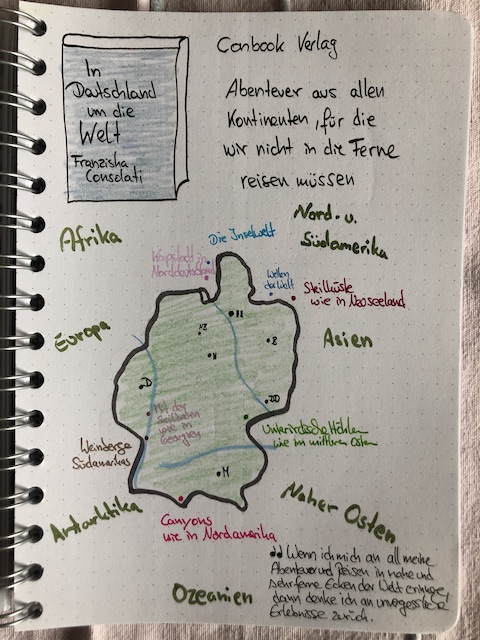 Conbook Verlag
In
Deutschland
um die
Welt
Franziska
Consolati
Abenteuer aus allen
Kontinenten, für die
wir nicht in die Ferne
reisen müssen
Nord- u.
Südamerika
Afrika
Die Inselwelt
Kapstadt in
Norddeutschland
Wellen
der Welt
Steilküste
wie in Neuseeland
Europa
Asien
HH
B
D
DD
Mit der
Seilbahn
wie in
Georgien
Unterirdische Höhlen
wie im mittleren Osten
Weinberge
Südamerikas
M
Antarktika
Naher Osten
Canyons
wie in Nordamerika
Ozeanien
Wenn ich mich an all meine
Abenteuer und Reisen in nahe und
sehr ferne Ecken der Welt erinnere,
dann denke ich an unvergessliche
Erlebnisse zurück.